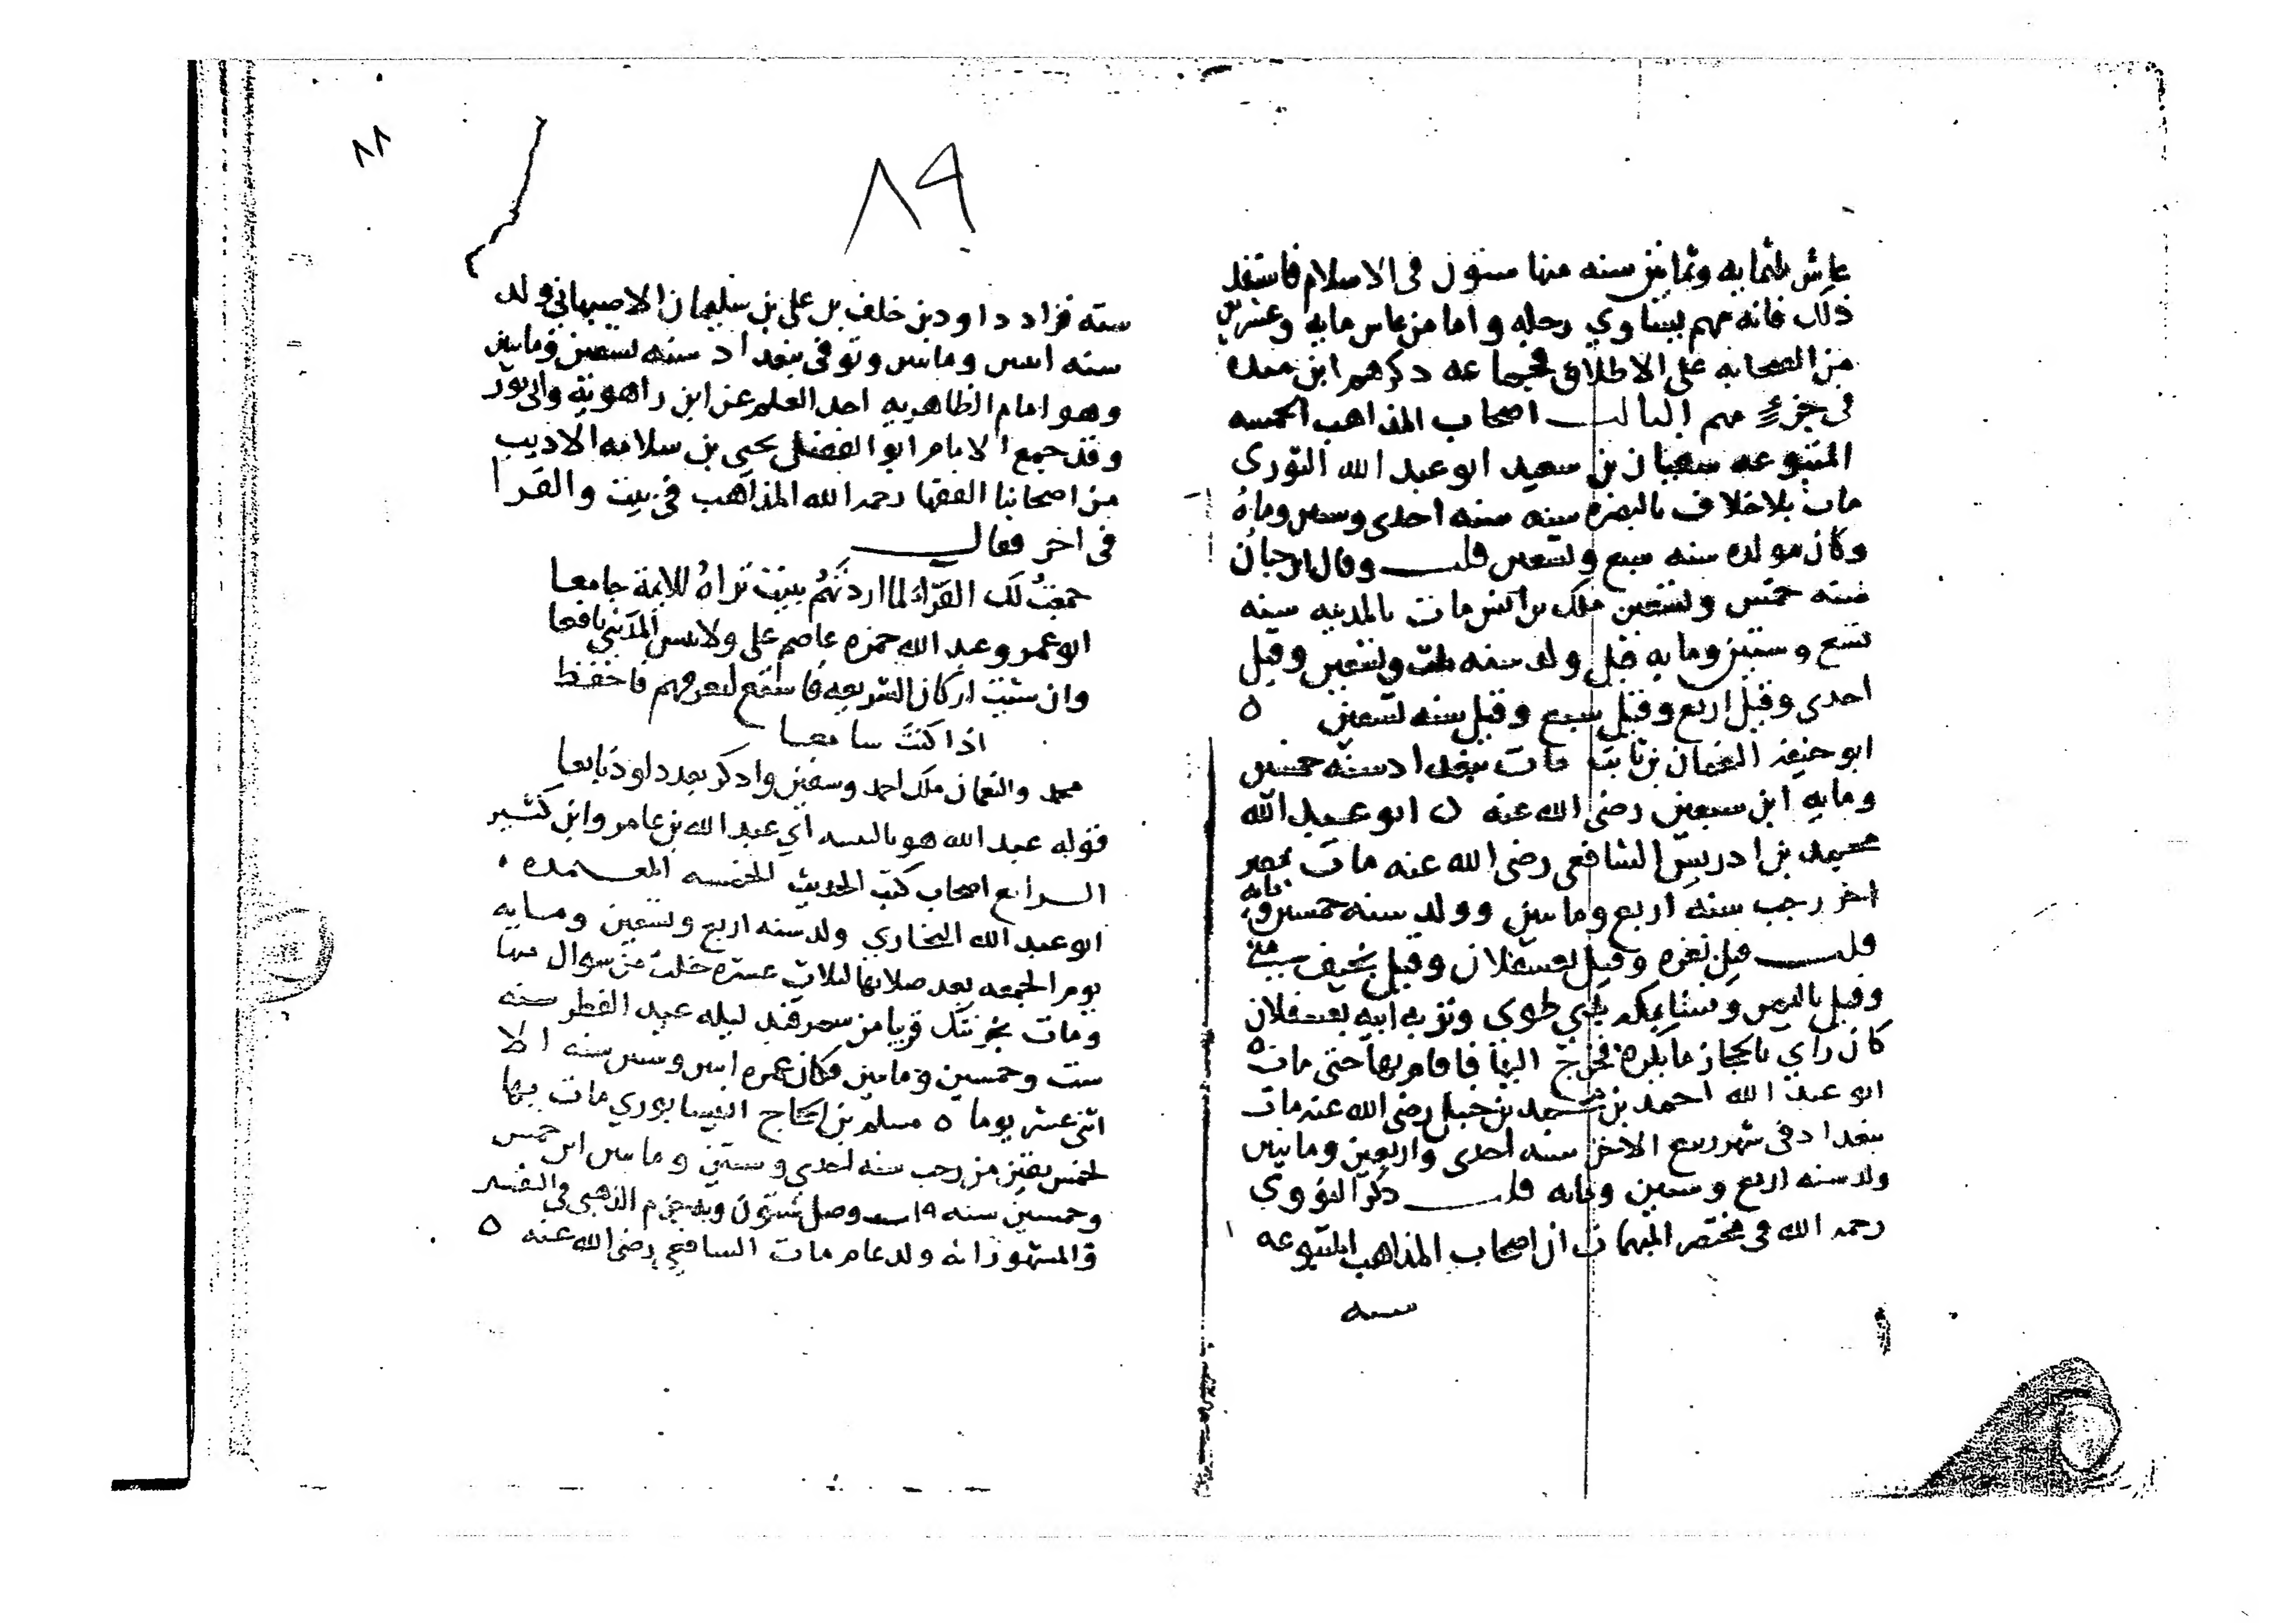 عاش ثلثمايه وثمانين سنه منها ستون فى الاسلام فاستفد
ذلك فانه مهم يتساوي رحله واما من عاش مايه وعشرين
من الصحابه على الاطلاق فجماعه ذكرهم ابن منده
فى جزء مهم الثالث اصحاب المذاهب الخمسه
المتبوعه سفيان بن سعيد ابو عبد الله الثوري
مات بلا خلاف بالبصره سنه سنه احدى وستين ومايه
وكان مولده سنه سبع وتسعين قلت وقال ابن حبان
سنه خمس وتسعين ملك بن انس مات بالمدينه سنه
تسع وسبعين ومايه قيل ولد سنه ثلث وتسعين وقيل
احدى وقيل اربع وقيل سبع وقيل سنه تسعين ه
ابو حنيفه النعمان بن ثابت مات ببغداد سنه خمسين
ومايه ابن سبعين رضى الله عنه ن ابو عبد الله
محمد بن ادريس الشافعى رضى الله عنه مات بمصر
اخر رجب سنه اربع ومايتين وولد سنه خمسين ومايه
قلت قيل بغزه وقيل بعسقلان وقيل بخيف منى
وقيل باليمن ونشا بمكه بذي طوي ونزيه ابيه بعسقلان
كان راي بالحجاز ما يكره فخرج اليها فاقام بها حتى مات ه
ابو عبد الله احمد بن محمد بن حنبل رضى الله عنه مات
ببغداد فى شهر ربيع الاخر سنه احدى واربعين ومايتين
ولد سنه اربع وستين ومايه قلت ذكر النووي
رحمه الله فى مختصر المبهمات ان اصحاب المذاهب المتبوعه
سته
٨٨
٨٩
سته فزاد داود بن خلف بن على بن سليمان الاصبهاني ولد
سنه اثنين ومايتين وتوفى ببغداد سنه تسعين ومايتين
وهو امام الظاهريه اخذ العلم عن ابن راهويه وابي ثور
وقد جمع الامام ابو الفضل يحيى بن سلامه الاديب
من اصحابنا الفقها رحمه الله المذاهب فى بيت والقرا
فى اخر فقال
جمعتُ لك القرّاء لما اردتهُم ببيت تراهُ للايمة جامعا
ابو عمرو وعبد الله حمزه عاصم على ولا تنس المدَيني نافعا
وان شئت اركان الشريعه فاستمع لتعرفهم فاحفظ
اذا كنتَ سامعا
محمد والنعمان ملك احمد وسفين واذكر بعد داود تابعا
قوله عبد الله هو بالتثنيه اي عبد الله بن عامر وابن كثير
الرابع اصحاب كتب الحديث الخمسه المعتمده
ابو عبد الله البخاري ولد سنه اربع وتسعين ومايه
يوم الجمعه بعد صلاتها لثلاث عشره خلت من شوال منها
ومات بخرتنك قريبا من سمرقند ليله عيد الفطر سنه
ست وخمسين ومايتين فكان عمره اثنين وستين سنه الا
اثنى عشر يوما ه مسلم بن الحجاج النيسابوري مات بها
لخمس بقين من رجب سنه احدي وستين ومايتين ابن خمس
وخمسين سنه قلت وصل ستون وبه جزم الذهبي في
والمشهور انه ولد عام مات الشافعي رضى الله عنه ه